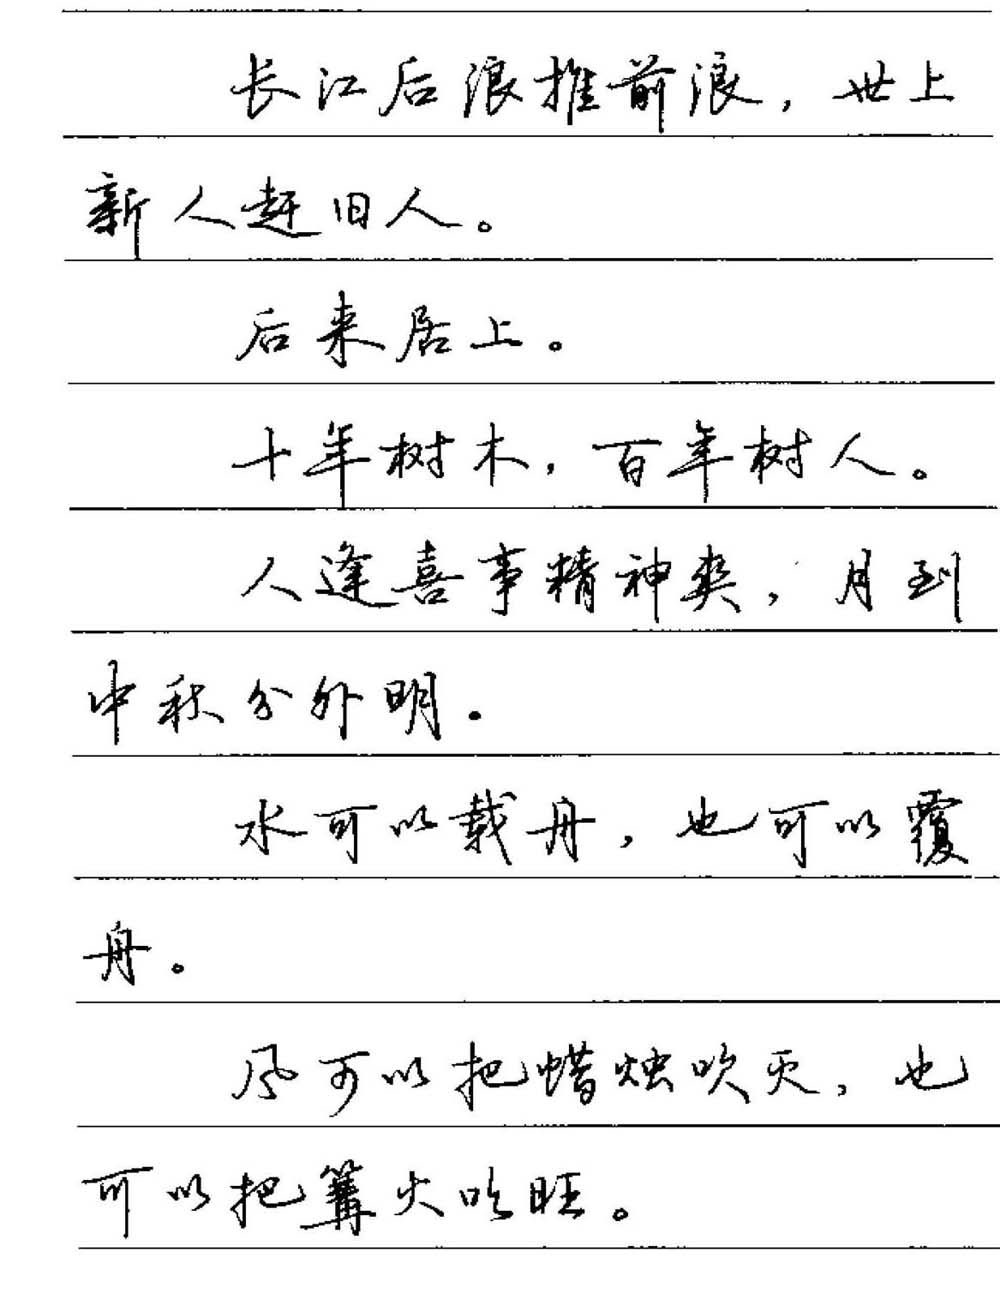 长江后浪推前浪，世上
新人赶旧人。
后来居上。
十年树木，百年树人。
人逢喜事精神爽，月到
中秋分外明。
水可以载舟，也可以覆
舟。
风可以把蜡烛吹灭，也
可以把篝火吹旺。